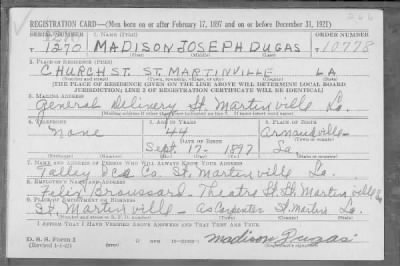 REGISTRATION CARD—(Men born on or after February 17, 1897 and on or before December 31, 1921)
SERIAL NUMBER 1. NAME (Print) ORDER NUMBER
T 1270 MADISON JOSEPH DUGAS 10778
2. PLACE OF RESIDENCE (Print)
CHURCH ST. ST. MARTINVILLE LA
[THE PLACE OF RESIDENCE GIVEN ON THE LINE ABOVE WILL DETERMINE LOCAL BOARD
JURISDICTION; LINE 2 OF REGISTRATION CERTIFICATE WILL BE IDENTICAL]
3. MAILING ADDRESS
General Delivery St. Martinville La.
[Mailing address if other than place indicated on line 2. If same insert word same]
4. TELEPHONE 5. AGE IN YEARS 6. PLACE OF BIRTH
None 44 Arnaudville
DATE OF BIRTH
Sept. 17- 1897 La.
7. NAME AND ADDRESS OF PERSON WHO WILL ALWAYS KNOW YOUR ADDRESS
Co. St. Martinville La.
8. EMPLOYER'S NAME AND ADDRESS
Felix Broussard - Theatre St. St. Martinville La
9. PLACE OF EMPLOYMENT OR BUSINESS
St. Martinville - as Carpenter St. Martin La.
I AFFIRM THAT I HAVE VERIFIED ABOVE ANSWERS AND THAT THEY ARE TRUE.
D. S. S. Form 1
(Revised 1-1-42)
Madison Dugas